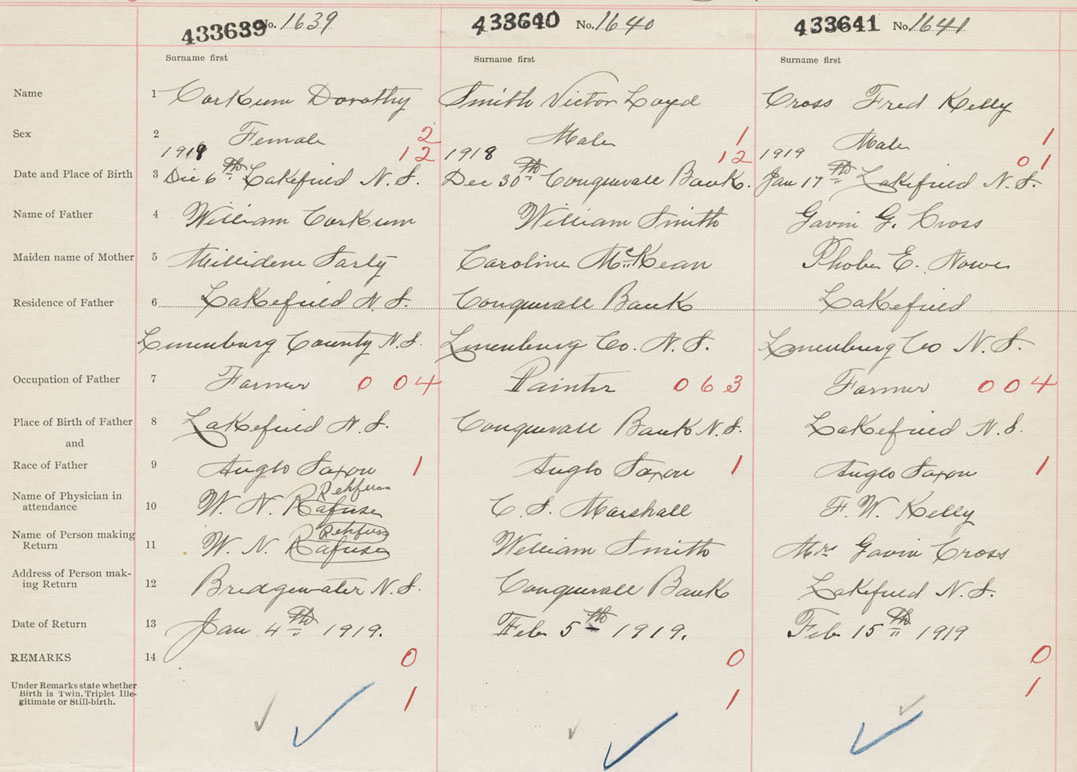 433639 No. 1639 433640 No. 1640 433641 No. 1641
Surname first Surname first Surname first
Name 1 Corkum Dorothy Smith Victor Loyd Cross Fred Kelly
Sex 2 Female 2 Male 1 Male 1
1918 12 1918 12 1919 01
Date and Place of Birth 3 Dec 6th Lakefield N.S. Dec 30th Conquerall Bank. Jan 17th Lakefield N.S.
Name of Father 4 William Corkum William Smith Gavin G. Cross
Maiden name of Mother 5 Caroline McKean Phobe E. Nowe
Residence of Father 6 Lakefield N.S. Conquerall Bank Lakefield
Lunenburg County N.S. Lunenburg Co. N.S. Lunenburg Co N.S.
Occupation of Father 7 Farmer 004 Painter 063 Farmer 004
Place of Birth of Father 8 Lakefield N.S. Conquerall Bank N.S. Lakefield N.S.
and
Race of Father 9 Anglo Saxon 1 Anglo Saxon 1 Anglo Saxon 1
Name of Physician in
attendance 10 W. N. Rafuse Rehfuss C. S. Marshall F. W. Kelly
Name of Person making
Return 11 W. N. Rafuse Rehfuss William Smith Mrs Gavin Cross
Address of Person mak-
ing Return 12 Bridgewater N.S. Conquerall Bank Lakefield N.S.
Date of Return 13 Jan 4th 1919. Feb 5th 1919. Feb 15th 1919
REMARKS 14 0 0 0
Under Remarks state whether
Birth is Twin, Triplet Ille-
gitimate or Still-birth. 1 1 1